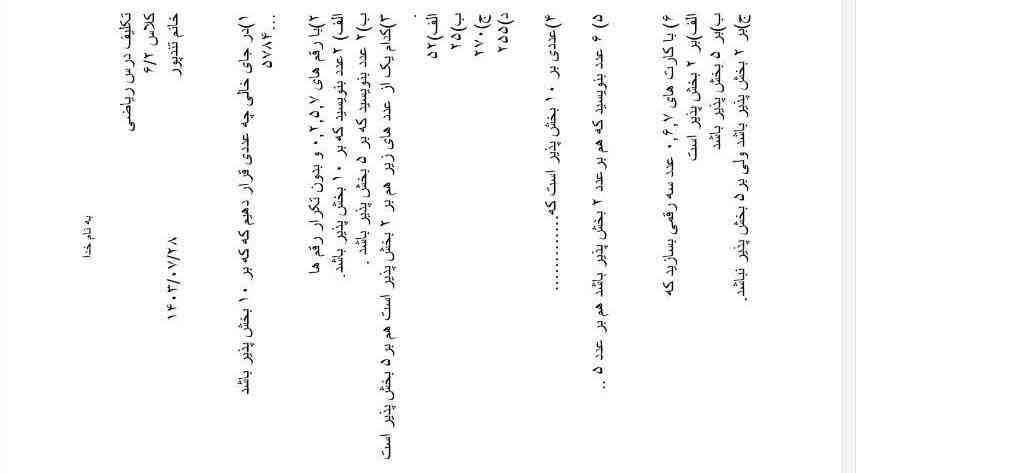 به نام خدا
تکلیف درس ریاضی
کلاس ۶/۲
خانم تندپور
۱۴۰۳/۰۷/۲۸
۱)در جای خالی چه عددی قرار دهیم که که بر ۱۰ بخش پذیر باشد
۵۷۸۴...
۲)با رقم های ۰,۲,۵,۷ و بدون تکرار رقم ها
الف) ۲عدد بنویسید که بر ۱۰ بخش پذیر باشد.
ب)۲ عدد بنویسید که بر ۵ بخش پذیر باشد .
۳)کدام یک از عدد های زیر هم بر ۲ بخش پذیر است هم بر ۵ بخش پذیر است
.
الف)۵۲
ب)۲۵
ج)۲۷۰
د)۲۵۵
۴)عددی بر ۱۰ بخش پذیر است که...............
۵) ۶ عدد بنویسید که هم بر عدد ۲ بخش پذیر باشد هم بر عدد ۵ ..
۶) با کارت های ۰,۶,۷ عدد سه رقمی بسازید که
الف)بر ۲ بخش پذیر است
ب)بر ۵ بخش پذیر باشد
ج)بر ۲ بخش پذیر باشد ولی بر ۵ بخش پذیر نباشد.